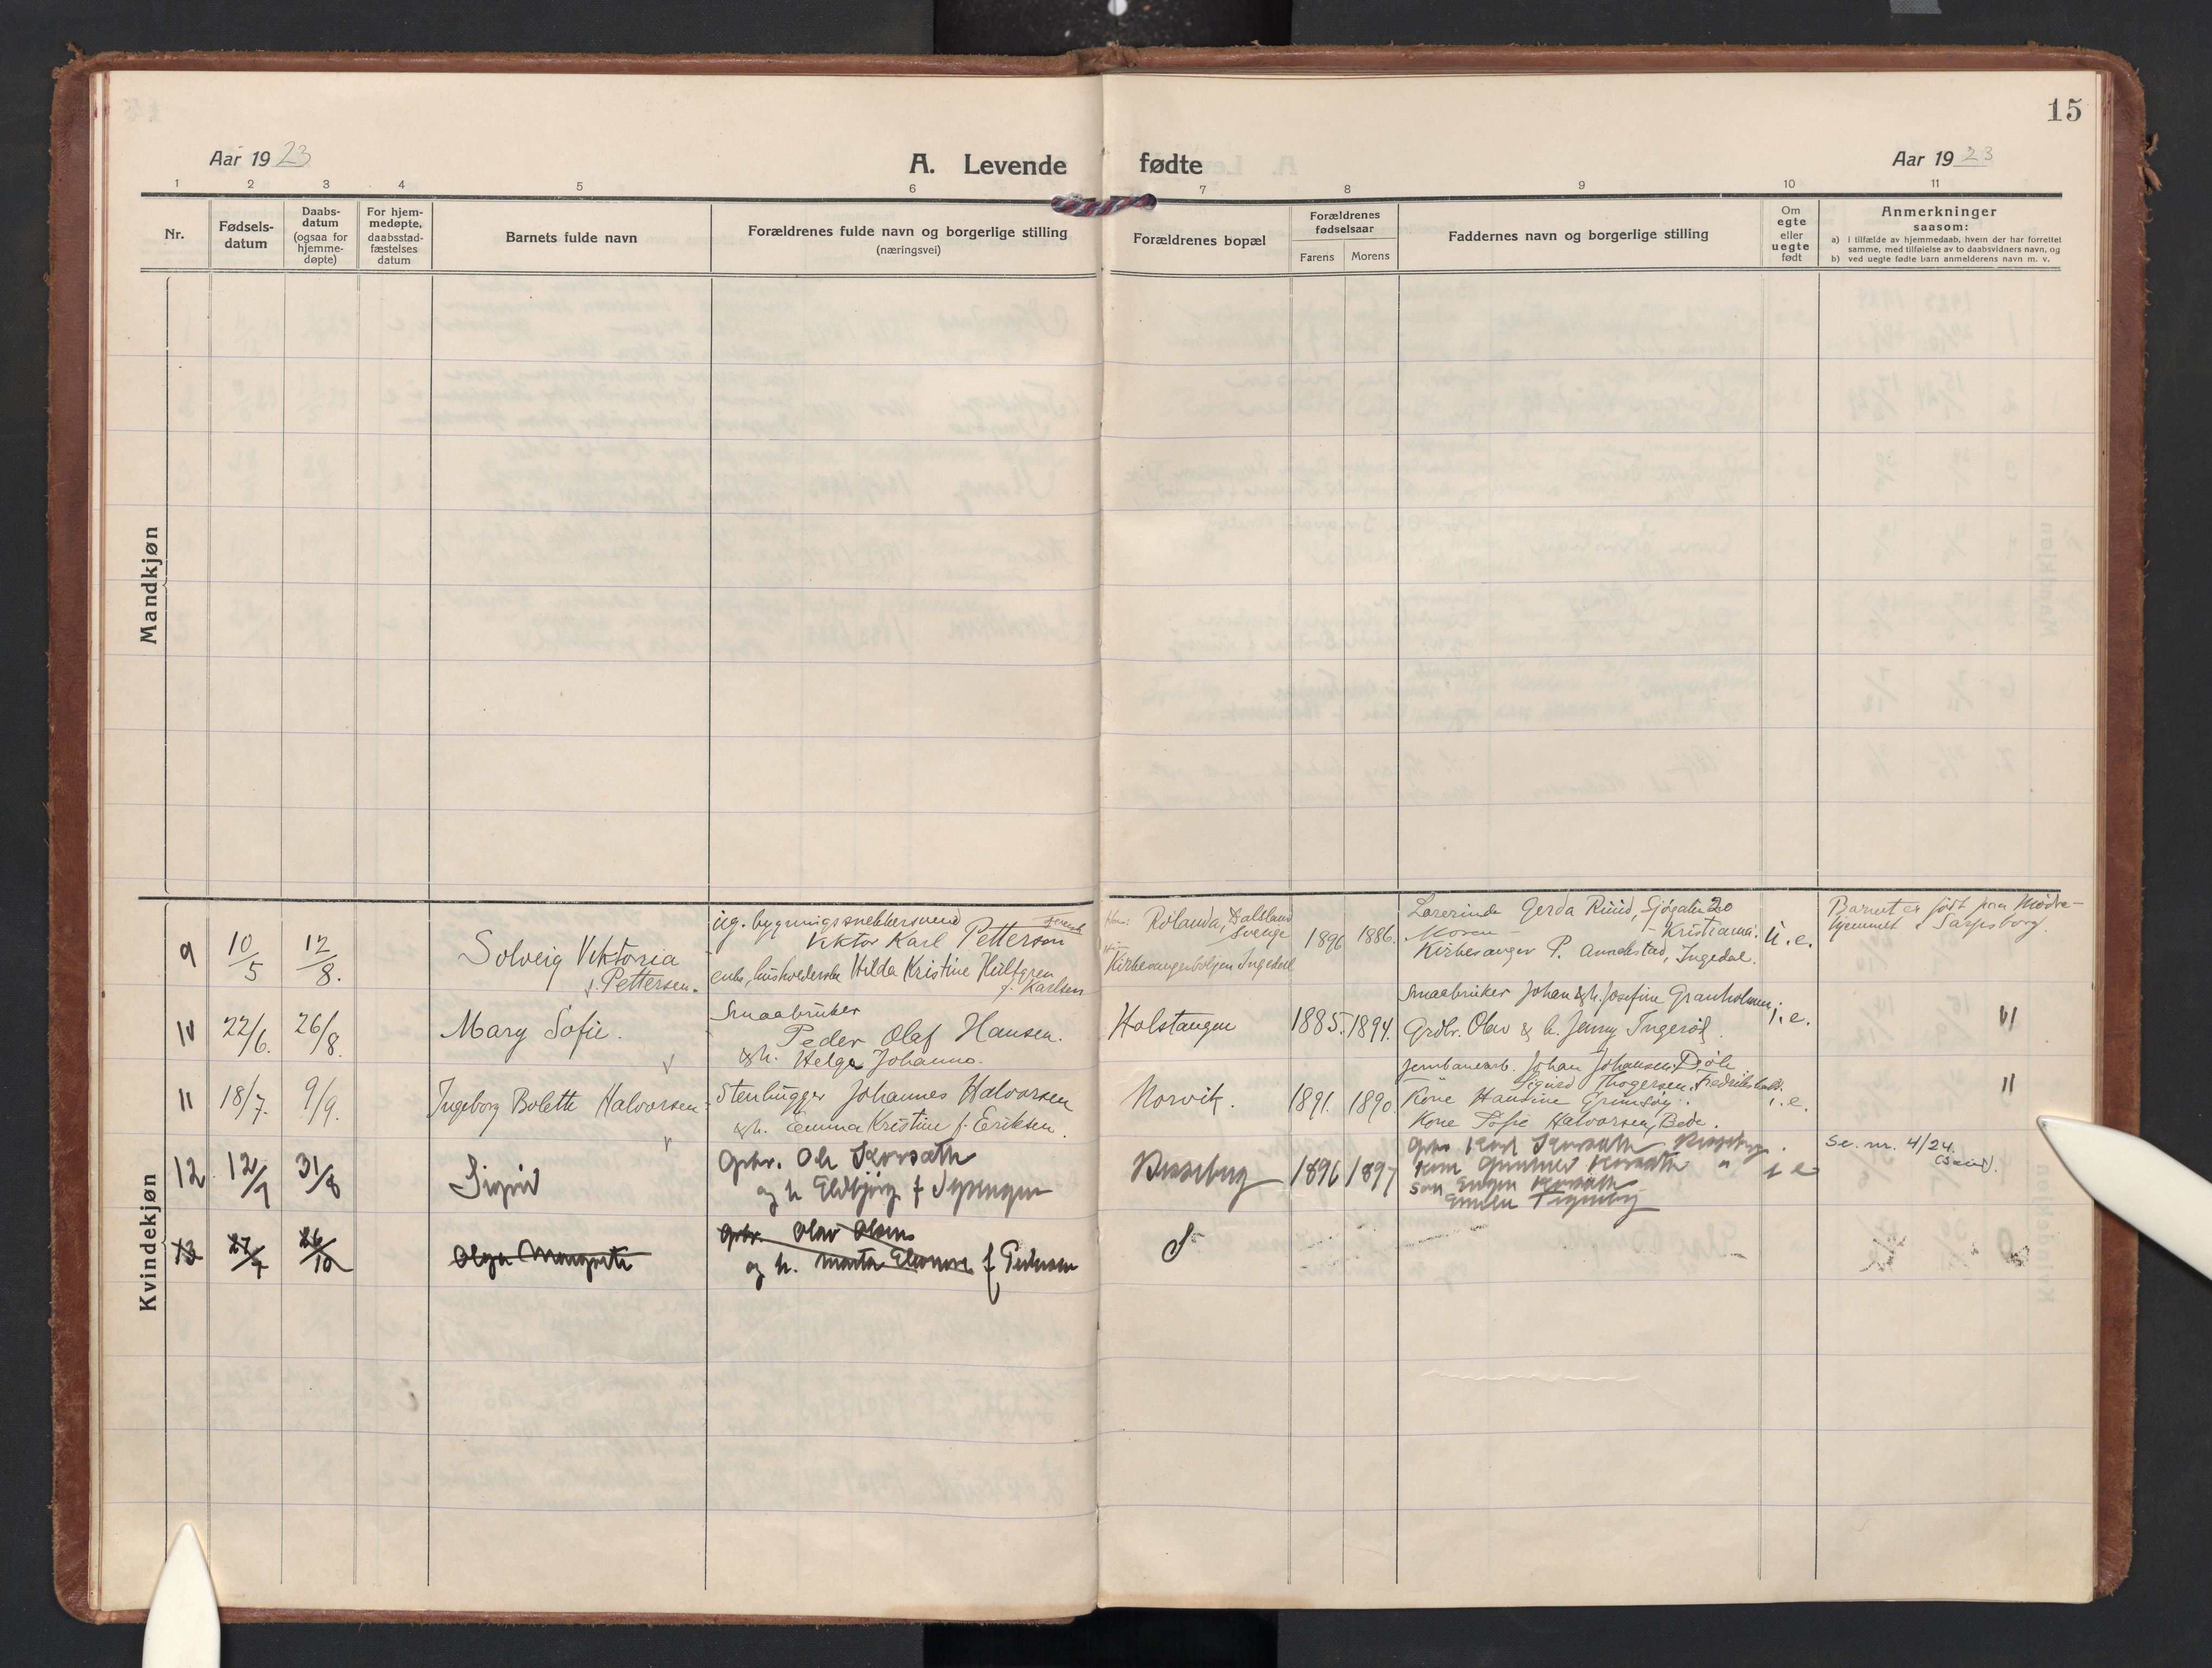 15
Aar 1923
A. Levende fødte
Aar 1923
1 2 3 4 5 6 7 8 9 10 11
Nr.
Fødsels-
datum
Daabs-
datum
(ogsaa for
hjemme-
døpte)
For hjem-
medøpte,
daabsstad-
fæstelses
datum
Barnets fulde navn
Forældrenes fulde navn og borgerlige stilling
(næringsvei)
Forældrenes bopæl
Forældrenes
fødselsaar
Farens Morens
Faddernes navn og borgerlige stilling
Om
egte
eller
uegte
født
Anmerkninger
saasom:
a) i tilfælde av hjemmedaab, hvem der har forrettet
samme, med tilføielse av to daabsvidners navn, og
b) ved uegte fødte barn anmelderens navn m. v.
Mandkjøn
Kvindekjøn
9 10/5 12/8.
Solveig Viktoria
Pettersen.
ug. bygningssnekkersvend
Viktor Karl Petterson
Hilda Kristine Hultgren
f. Karlsen
Rølanda, Dalsland
Sverige
Kirkesangerboligen Ingedal
1896 1886.
Lærerinde Gerda Ruud, Sjøgaten 20
Moren - Kristiania.
Kirkesanger P. Annelstad, Ingedal.
u. e.
Barnet er født paa Mødre-
hjemmet i Sarpsborg.
10 22/6. 26/8.
Mary Sofie.
Smaabruker
Peder Olaf Hansen.
& h. Helga Johanna.
Holstangen
1885. 1894.
Smaabruker Johan & h. Josefine Granholmen
Grdbr. Olav & h. Jenny Ingerød.
i. e.
"
11 18/7. 9/9.
Ingeborg Bolette Halvorsen
Stenhugger Johannes Halvorsen
& h. Emma Kristine f. Eriksen.
Norvik.
1891. 1890.
Jernbanearb. Johan Johansen,
Sigurd Thogersen, Fredrikshald.
Kone Hansine Grimsøy.
Kone Sofie Halvorsen,
i. e.
"
12 12/7 31/8
Sigrid
Gbr. Ole
og h Eldbjørg f
1896 1897
Gbr Karl
Kone
i e
Se. nr. 4/24.
13 27/7 26/10
Olga Margrete
Gbr. Olav Olsen
og h. Marta Eleonore f Pedersen